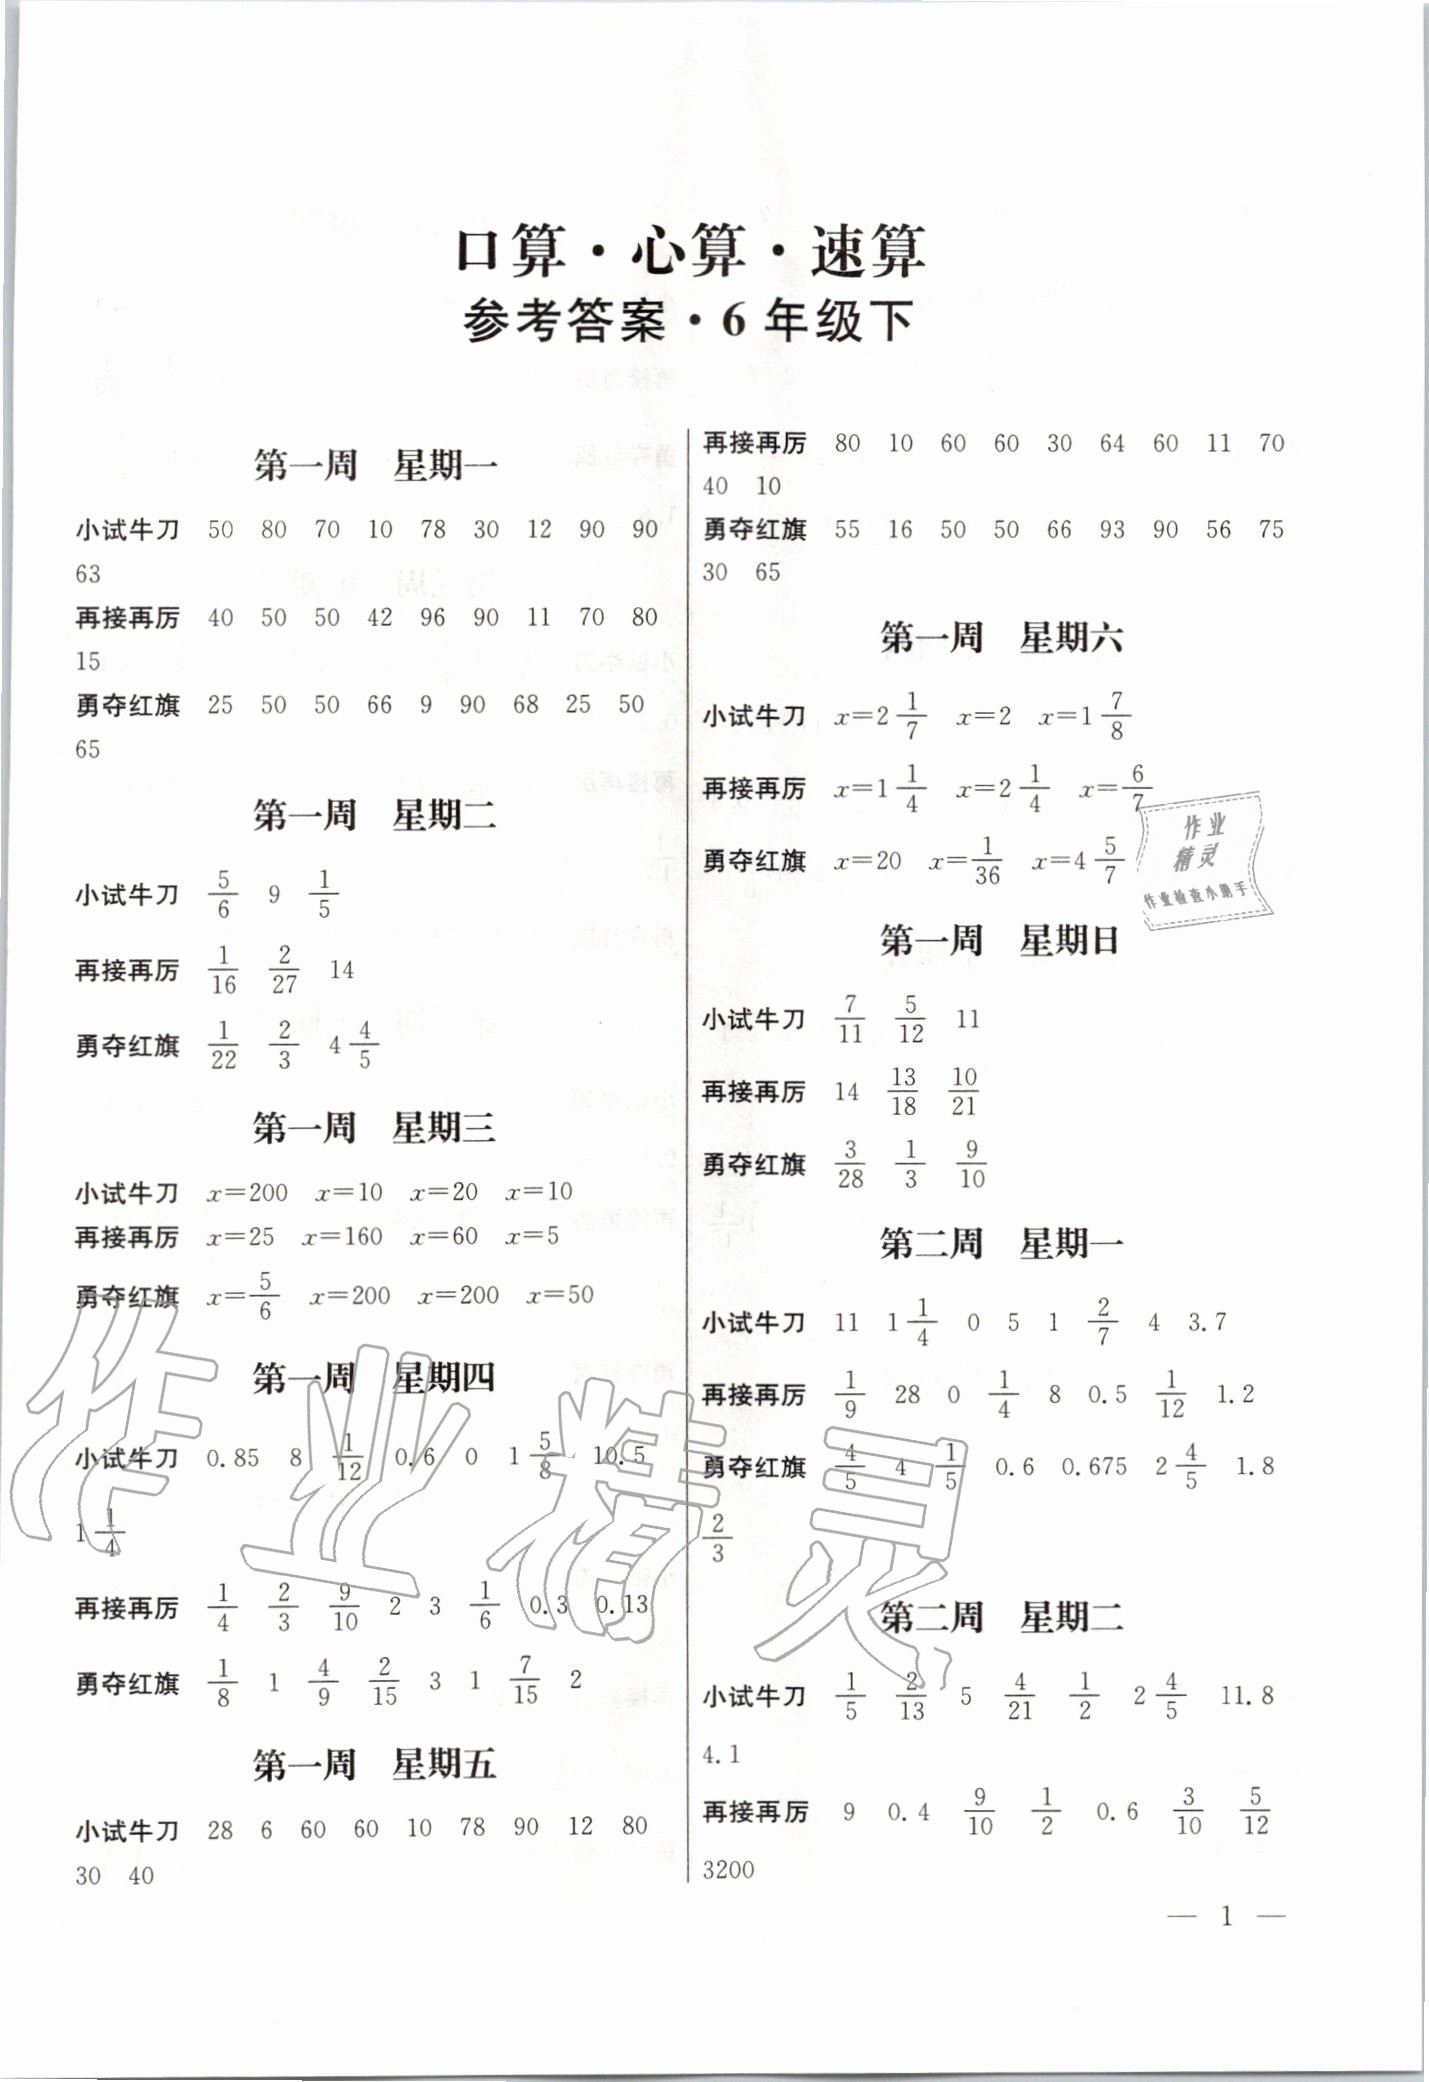 口算·心算·速算
参考答案·6年级下
第一周 星期一
小试牛刀 50 80 70 10 78 30 12 90 90
63
再接再厉 40 50 50 42 96 90 11 70 80
15
勇夺红旗 25 50 50 66 9 90 68 25 50
65
第一周 星期二
小试牛刀 5/6 9 1/5
再接再厉 1/16 2/27 14
勇夺红旗 1/22 2/3 4 4/5
第一周 星期三
小试牛刀 x=200 x=10 x=20 x=10
再接再厉 x=25 x=160 x=60 x=5
勇夺红旗 x=5/6 x=200 x=200 x=50
第一周 星期四
小试牛刀 0.85 8 1/12 0.6 0 1 5/8 10.5
1 1/4
再接再厉 1/4 2/3 9/10 2 3 1/6 0.3 0.13
勇夺红旗 1/8 1 4/9 2/15 3 1 7/15 2
第一周 星期五
小试牛刀 28 6 60 60 10 78 90 12 80
30 40
再接再厉 80 10 60 60 30 64 60 11 70
40 10
勇夺红旗 55 16 50 50 66 93 90 56 75
30 65
第一周 星期六
小试牛刀 x=2 1/7 x=2 x=1 7/8
再接再厉 x=1 1/4 x=2 1/4 x=6/7
勇夺红旗 x=20 x=1/36 x=4 5/7
作业
精灵
作业检查小助手
第一周 星期日
小试牛刀 7/11 5/12 11
再接再厉 14 13/18 10/21
勇夺红旗 3/28 1/3 9/10
第二周 星期一
小试牛刀 11 1 1/4 0 5 1 2/7 4 3.7
再接再厉 1/9 28 0 1/4 8 0.5 1/12 1.2
勇夺红旗 4/5 4 1/5 0.6 0.675 2 4/5 1.8
2/3
第二周 星期二
小试牛刀 1/5 2/13 5 4/21 1/2 2 4/5 11.8
4.1
再接再厉 9 0.4 9/10 1/2 0.6 3/10 5/12
3200
— 1 —
作业精灵